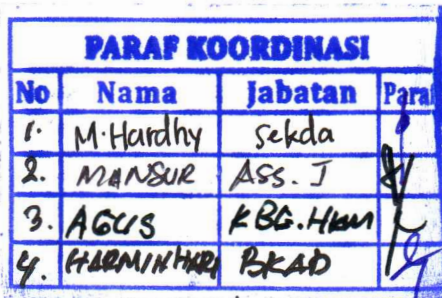 PARAF KOORDINASI
No Nama Jabatan Para
1. M. Hardhy Sekda
2. MANSUR ASS. I
3. AGUS KBG. HKM
4. BKAD